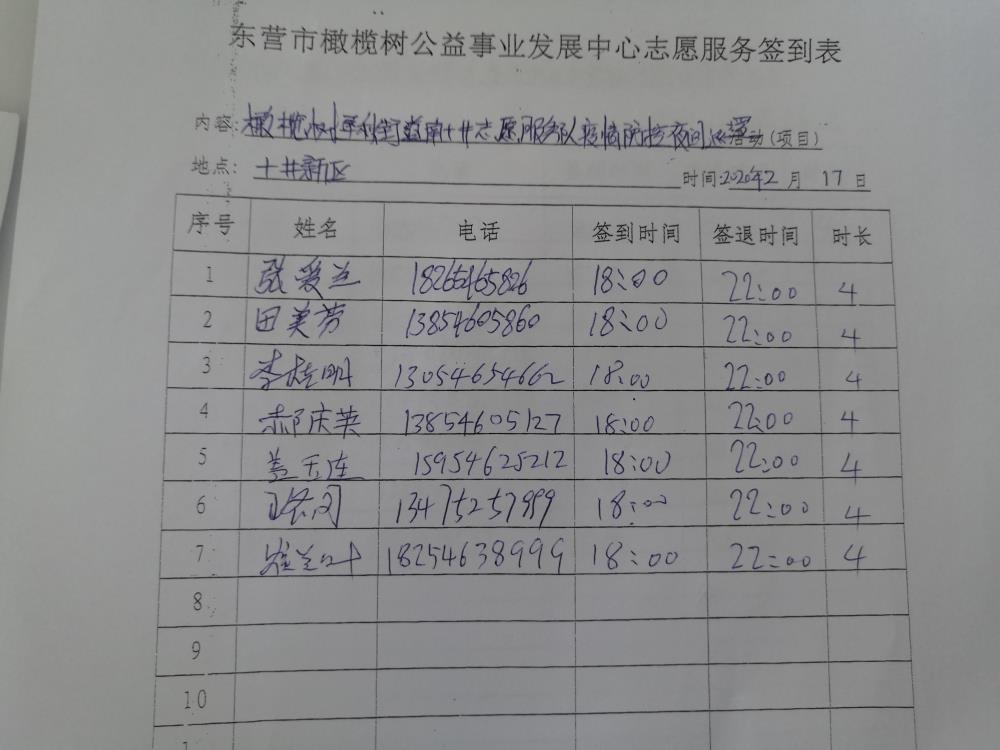 东营市橄榄树公益事业发展中心志愿服务签到表
内容:橄榄树 志愿服务队疫情防控夜间 活动(项目)
地点: 十井新区 时间:2020年2月17日
序号 姓名 电话 签到时间 签退时间 时长
1 张爱兰 18265465826 18:00 22:00 4
2 田美芳 13854605860 18:00 22:00 4
3 李桂明 13054654662 18:00 22:00 4
4 郝庆英 13854605127 18:00 22:00 4
5 盖玉连 15954625212 18:00 22:00 4
6 13475257999 18:00 22:00 4
7 崔兰叶 18254638999 18:00 22:00 4
8
9
10